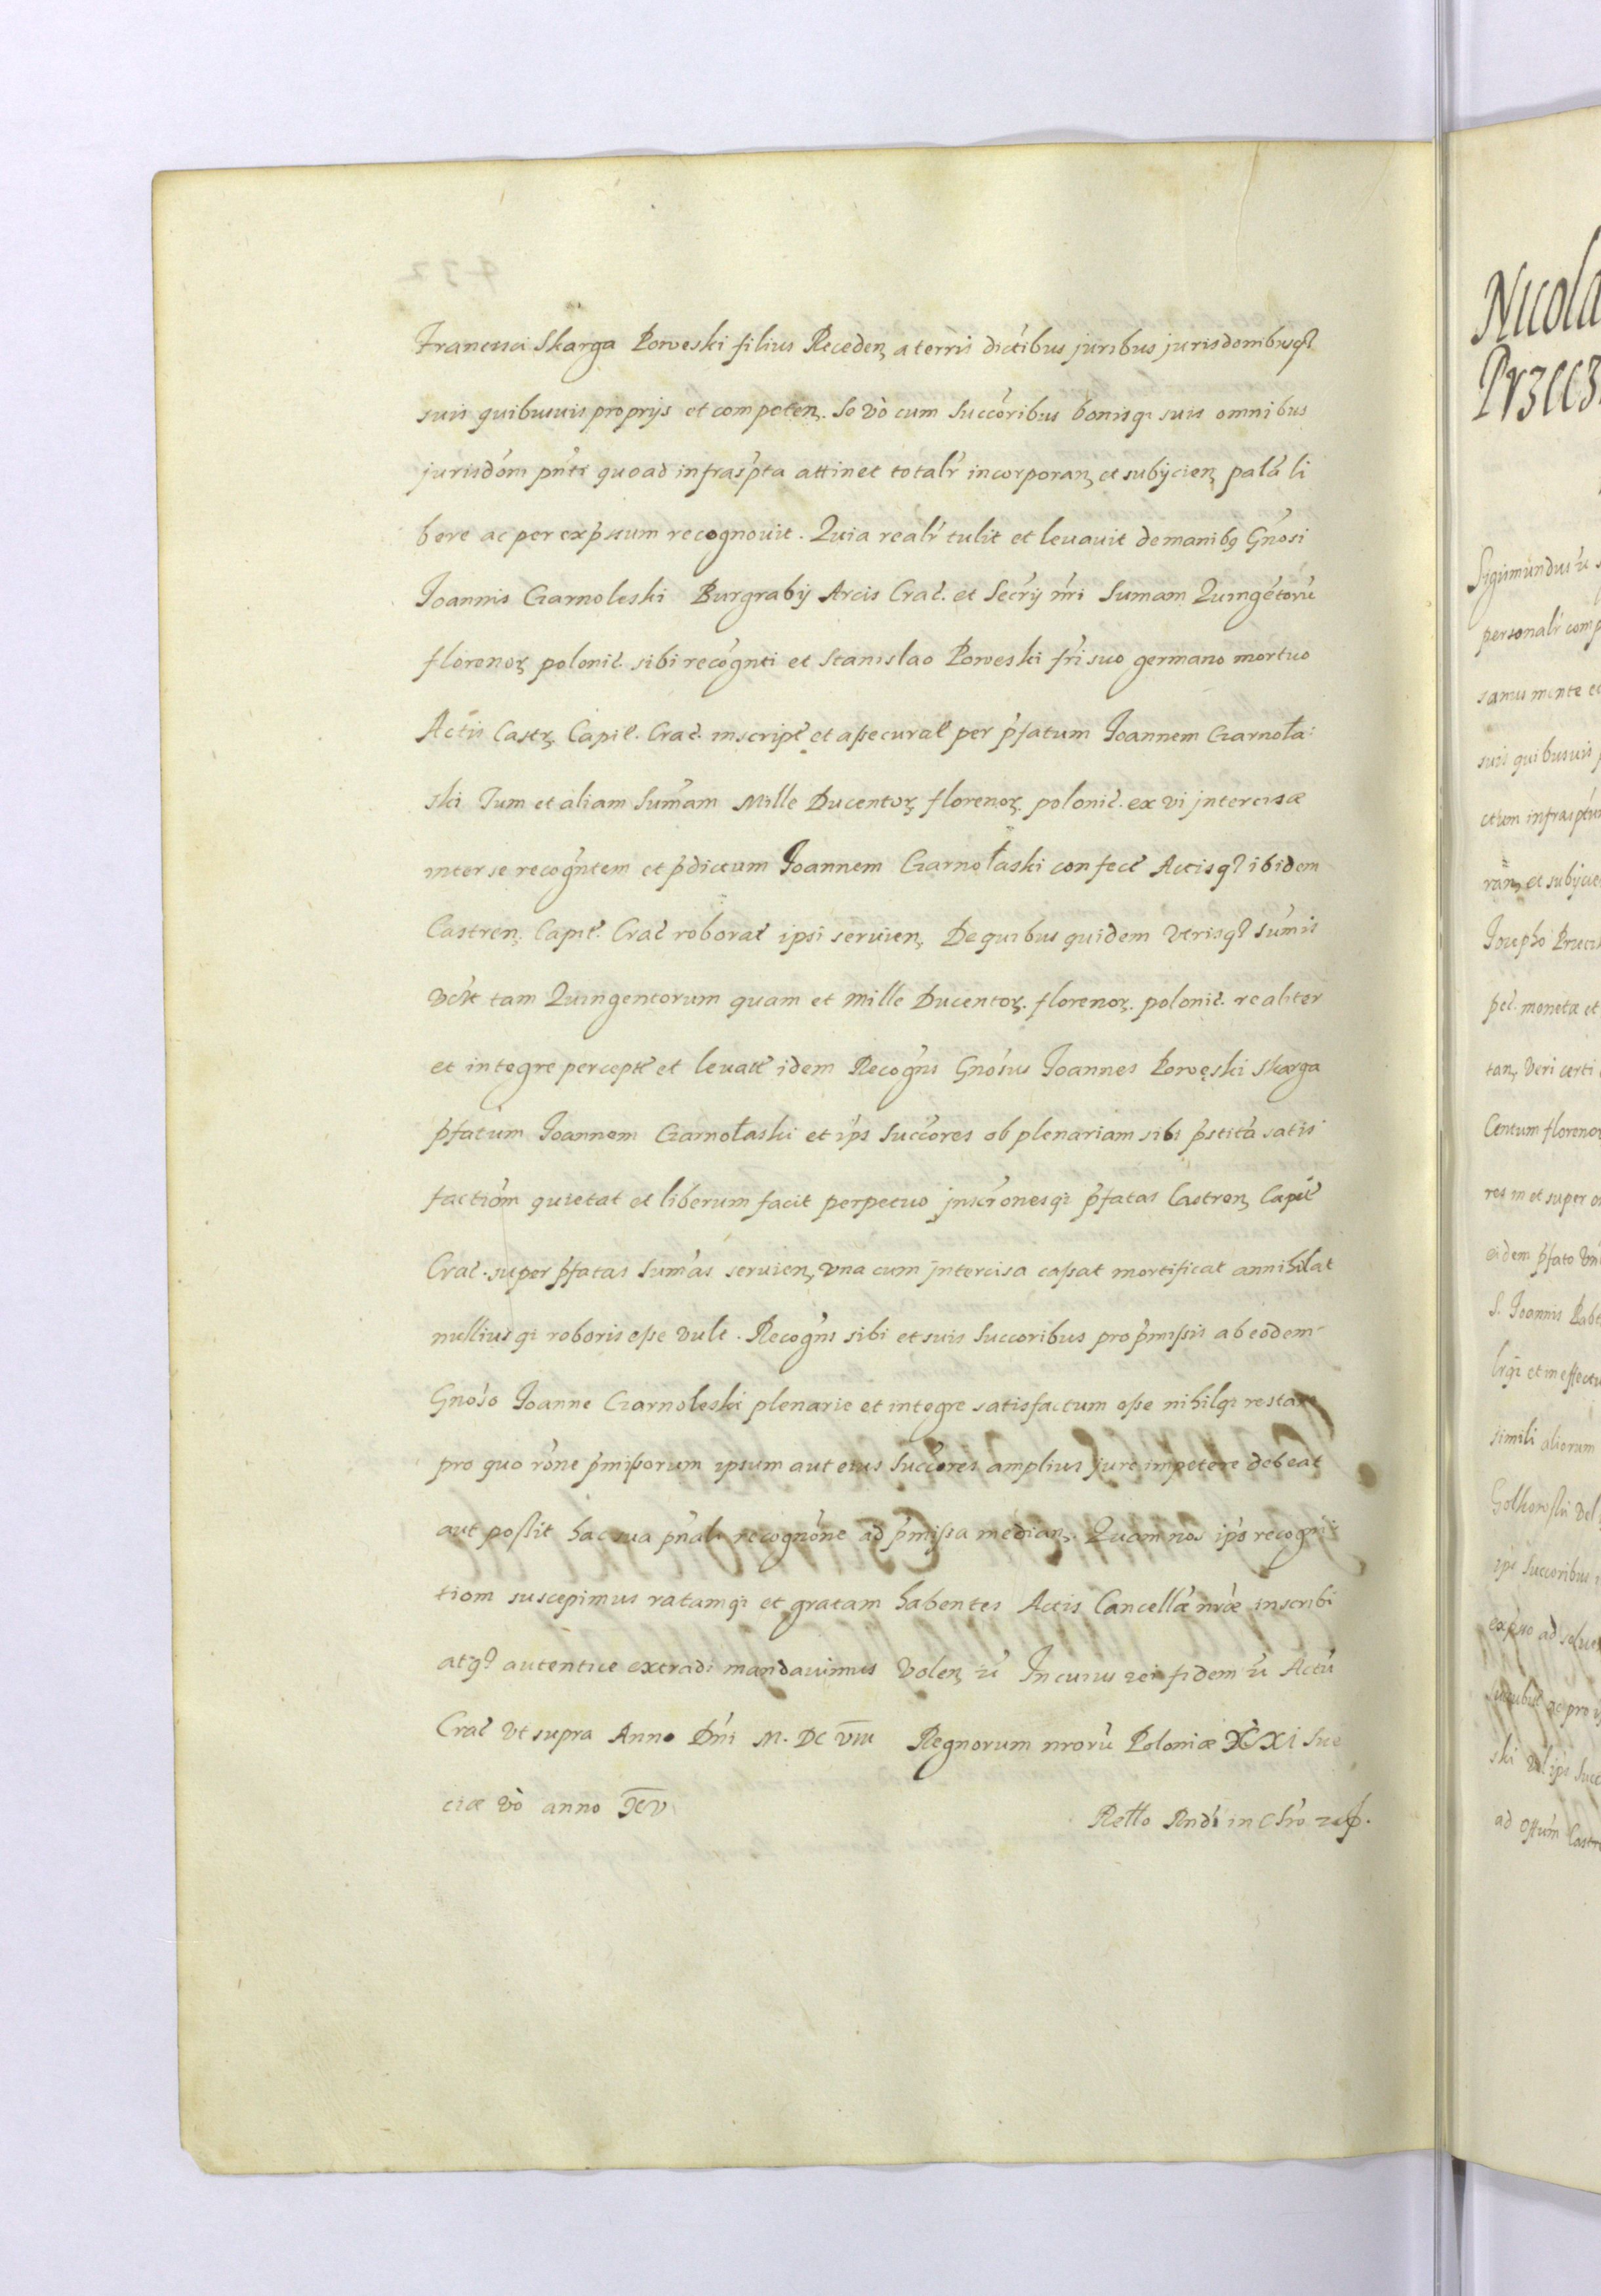 Francisci Skarga Poweski filius Receden, a terris dictibus juribus jurisdonibusq3
suis quibusuis proprijs et competen. Se vò cum Succoribus bonisq; suis omnibus
jurisdóni pńti quoad infrasṕta attinet totalŕ incorporan, et subijcien, palá li
bere ac per exṕssum recognouit. Quia realŕ tulit et leuauit de manib9 Gńosi
Joannis Czarnoleski Burgrabij Arcis Crac̃. et Secrij nŕi Sumam Quingétorū
florenoꝝ polonic̃. sibi recógnti et Stanislao Poweski fŕi suo germano mortuo
Actis Castꝝ. Capit̃. Crac̃. inscript̃ et assecurat̃ per ṕfatum Joannem Czarnoła:
ski Tum et aliam Sum̃am Mille Ducentoꝝ florenoꝝ. polonic̃. ex vi jntercisæ
inter se recogńtem et ṕdictum Joannem Czarnołaski confect̃ Actisq3 ibidem
Castren. Capit̃. Crac̃ roborat̃ ipsi seruien, De quibus quidem Vtrisq3 Sum̃is
Vcꝫt tam Quingentorum quam et Mille Ducentoꝝ. florenoꝝ. polonic̃. realiter
et integre percept̃ et leuat̃ idem Recogńs Gnósus Joannes Powęski Skarga
ṕfatum Joannem Czarnołaski et iṕs Succ̃ores ob plenariam sibi ṕstitã satis
factióm quietat et liberum facit perpetuo jnscŕonesq; ṕfatas Castren, Capit̃
Crac̃. super ṕfatas Sum̃as seruien, vna cum jntercisa cassat mortificat annihilat
nulliusq; roboris esse vult. Recogńs sibi et suis Succoribus pro ṕmissis ab eodem
Gnóso Joanne Czarnoleski plenarie et integre satisfactum esse nihilq; restare
pro quo róne ṕmissorum ipsum aut eius Succ̃ores amplius jure impetere debeat
aut possit hac sua pńali recognóne ad ṕmissa median. Quam nos iṕs recogni
tiom suscepimus ratamq; et gratam habentes Actis Cancellæ nŕæ inscribi
atq3 autentice extradi mandauimus Volen, ꝛc̃ In cuius rei fidem ꝛc̃ Actū
Crac̃ Vt supra Anno Dńi M. DC VIII Regnorum nrorū Poloniæ XXI Sue
ciæ vò anno XV
Retto Rndí in Chro
Nicola
Przecz
Sigismundus ꝛc̃
personalŕ comp
sanus mente et
suis quibusuis
ctum infrasptū
ran, et subijcie
Josepho
pec̃. monetæ et
tan, veri certi
Centum floreno
res in et super
eidem ṕfato
S. Joannis
et in effectu
simili aliorum
iṕi Succoribus
exṕsso ad
ac pro
ski vel iṕi Succ
ad Castr